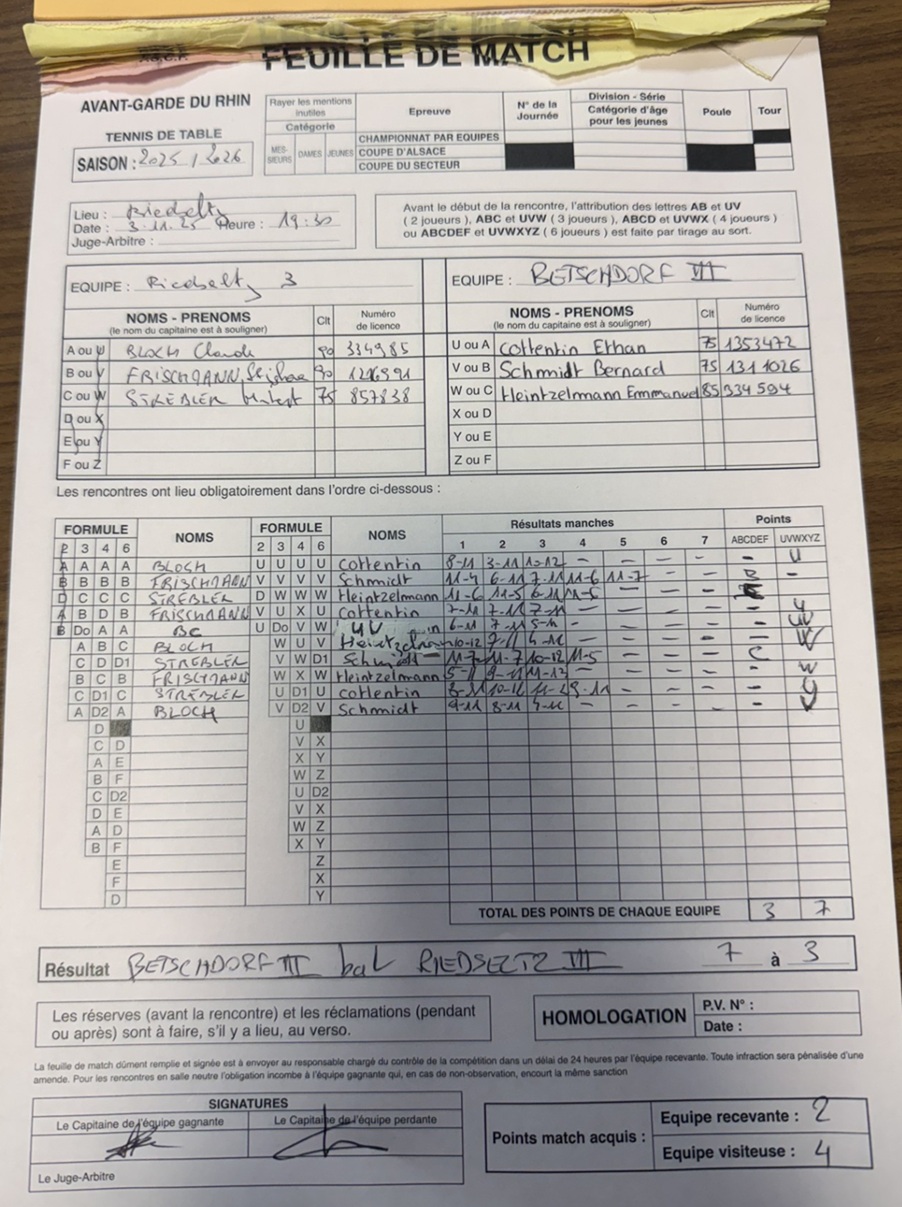 FEUILLE DE MATCH
AVANT-GARDE DU RHIN
TENNIS DE TABLE
SAISON : 2025 / 2026
Rayer les mentions inutiles
Catégorie
MES-SIEURS DAMES JEUNES
Epreuve
N° de la Journée
Division - Série
Catégorie d'âge pour les jeunes
Poule
Tour
CHAMPIONNAT PAR EQUIPES
COUPE D'ALSACE
COUPE DU SECTEUR
Lieu : Riedseltz
Date : 3.11.25 Heure : 19:30
Juge-Arbitre :
Avant le début de la rencontre, l'attribution des lettres AB et UV
( 2 joueurs ), ABC et UVW ( 3 joueurs ), ABCD et UVWX ( 4 joueurs )
ou ABCDEF et UVWXYZ ( 6 joueurs ) est faite par tirage au sort.
EQUIPE : Riedseltz 3
EQUIPE : BETSCHDORF III
NOMS - PRENOMS (le nom du capitaine est à souligner) Clt Numéro de licence
A ou U BLOCH Claude 90 334985
B ou V FRISCHMANN 90
C ou W STREBLER 75 857838
D ou X
E ou Y
F ou Z
NOMS - PRENOMS (le nom du capitaine est à souligner) Clt Numéro de licence
U ou A Cottentin Ethan 75 1353472
V ou B Schmidt Bernard 75 1311026
W ou C Heintzelmann Emmanuel 85 334594
X ou D
Y ou E
Z ou F
Les rencontres ont lieu obligatoirement dans l'ordre ci-dessous :
FORMULE NOMS FORMULE NOMS Résultats manches Points
2 3 4 6 2 3 4 6 1 2 3 4 5 6 7 ABCDEF UVWXYZ
A A A A BLOCH U U U U Cottentin 8-11 3-11 10-12 - - - - - U
B B B B FRISCHMANN V V V V Schmidt 11-4 6-11 7-11 11-6 11-7 - - B -
D C C C STREBLER D W W W Heintzelmann 11-6 11-5 6-11 11-5 - - -
A B D B FRISCHMANN V U X U Cottentin 7-11 7-11 7-11 - - - - - U
B Do A A BC U Do V W UV 6-11 7-11 5-11 - - - - - UV
A B C BLOCH W U V Heintzelmann 10-12 - - - - - W
C D D1 STREBLER V W D1 Schmidt 11-7 11-7 10-12 11-5 - - - C -
B C B FRISCHMANN W X W Heintzelmann 5-11 9-11 11-13 - - - - - W
C D1 C STREBLER U D1 U Cottentin 10-12 9-11 - - - - U
A D2 A BLOCH V D2 V Schmidt 9-11 8-11 - - - - -
D U
C D V X
A E X Y
B F W Z
C D2 U D2
D E V X
A D W Z
B F X Y
E Z
F X
D Y
TOTAL DES POINTS DE CHAQUE EQUIPE 3 7
Résultat BETSCHDORF III bat RIEDSELTZ III 7 à 3
Les réserves (avant la rencontre) et les réclamations (pendant
ou après) sont à faire, s'il y a lieu, au verso.
HOMOLOGATION
P.V. N° :
Date :
La feuille de match dûment remplie et signée est à envoyer au responsable chargé du contrôle de la compétition dans un délai de 24 heures par l'équipe recevante. Toute infraction sera pénalisée d'une
amende. Pour les rencontres en salle neutre l'obligation incombe à l'équipe gagnante qui, en cas de non-observation, encourt la même sanction
SIGNATURES
Le Capitaine de l'équipe gagnante
Le Capitaine de l'équipe perdante
Le Juge-Arbitre
Points match acquis :
Equipe recevante : 2
Equipe visiteuse : 4